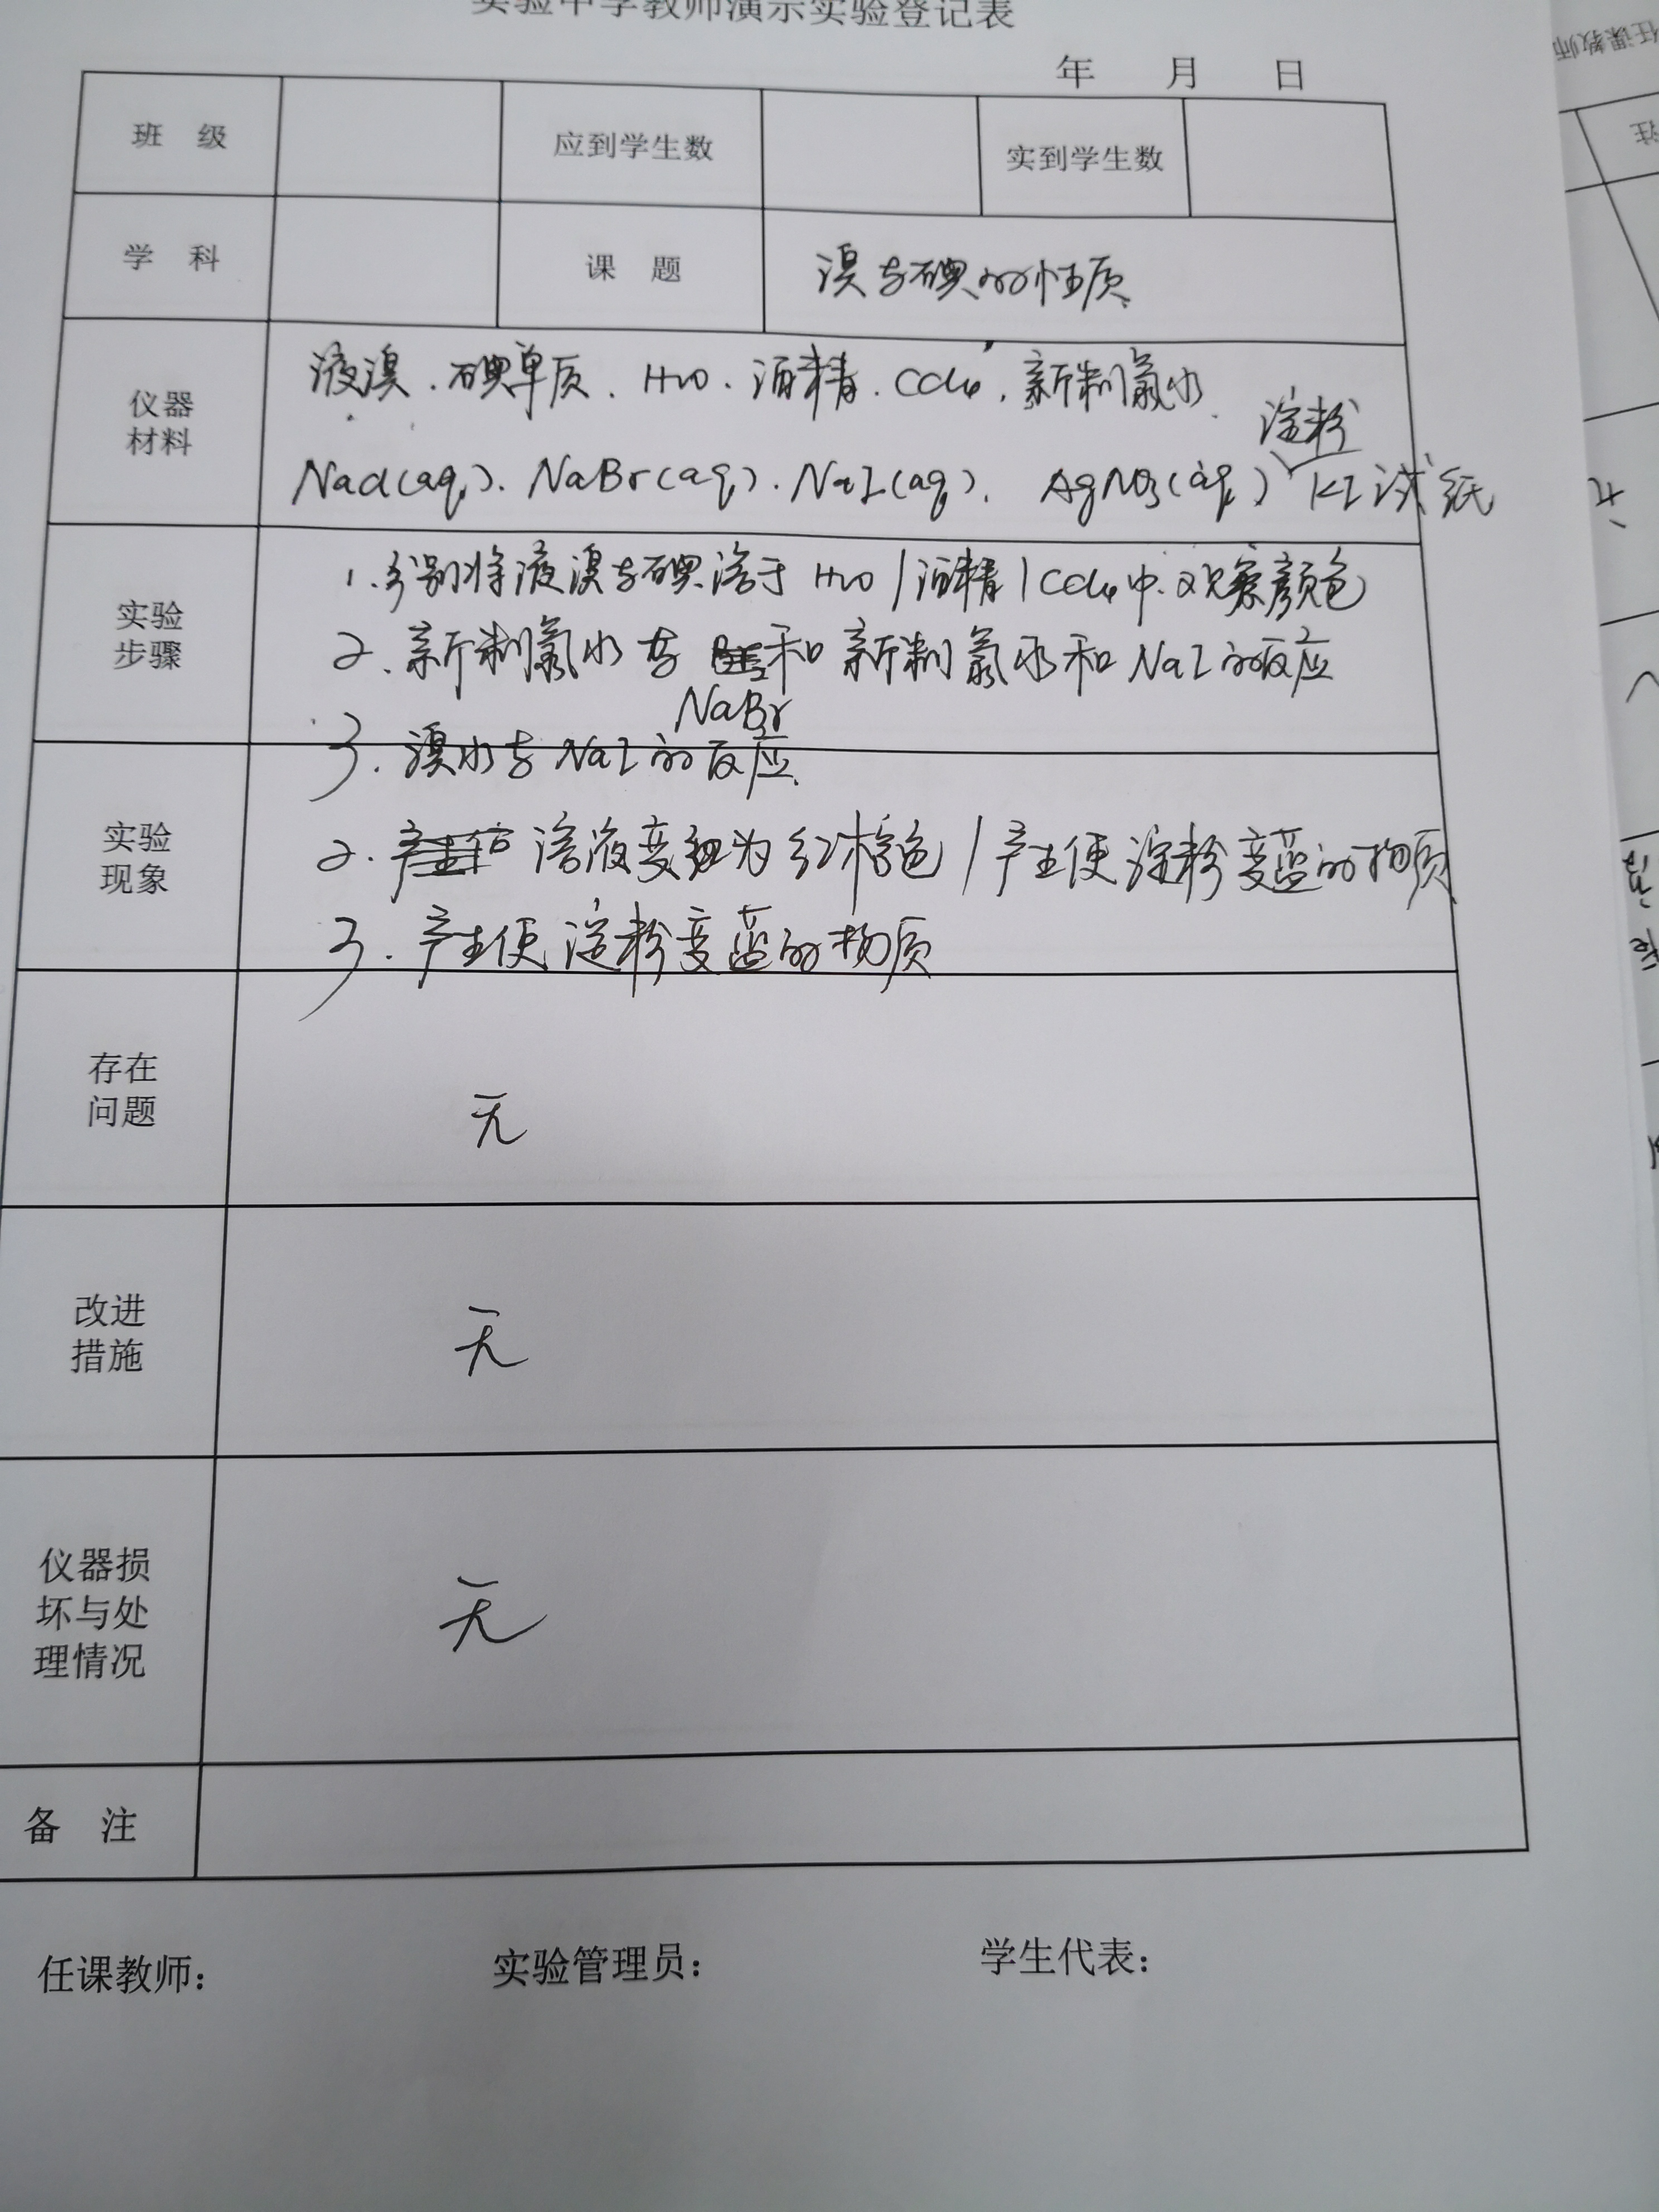 实验中学教师演示实验登记表
年 月 日
班 级 应到学生数 实到学生数
学 科 课 题 溴与碘的性质
仪器材料
液溴、碘单质、H2O、酒精、CCl4、新制氯水、
NaCl(aq)、NaBr(aq)、NaI(aq)、AgNO3(aq) 淀粉KI试纸
实验步骤
1.分别将液溴与碘溶于H2O/酒精/CCl4中.观察颜色
2.新制氯水与NaBr和新制氯水和NaI的反应
3.溴水与NaI的反应.
实验现象
2.溶液变为红棕色/产生使淀粉变蓝的物质
3.产生使淀粉变蓝的物质
存在问题
无
改进措施
无
仪器损坏与处理情况
无
备 注
任课教师: 实验管理员: 学生代表:
任课教师
注